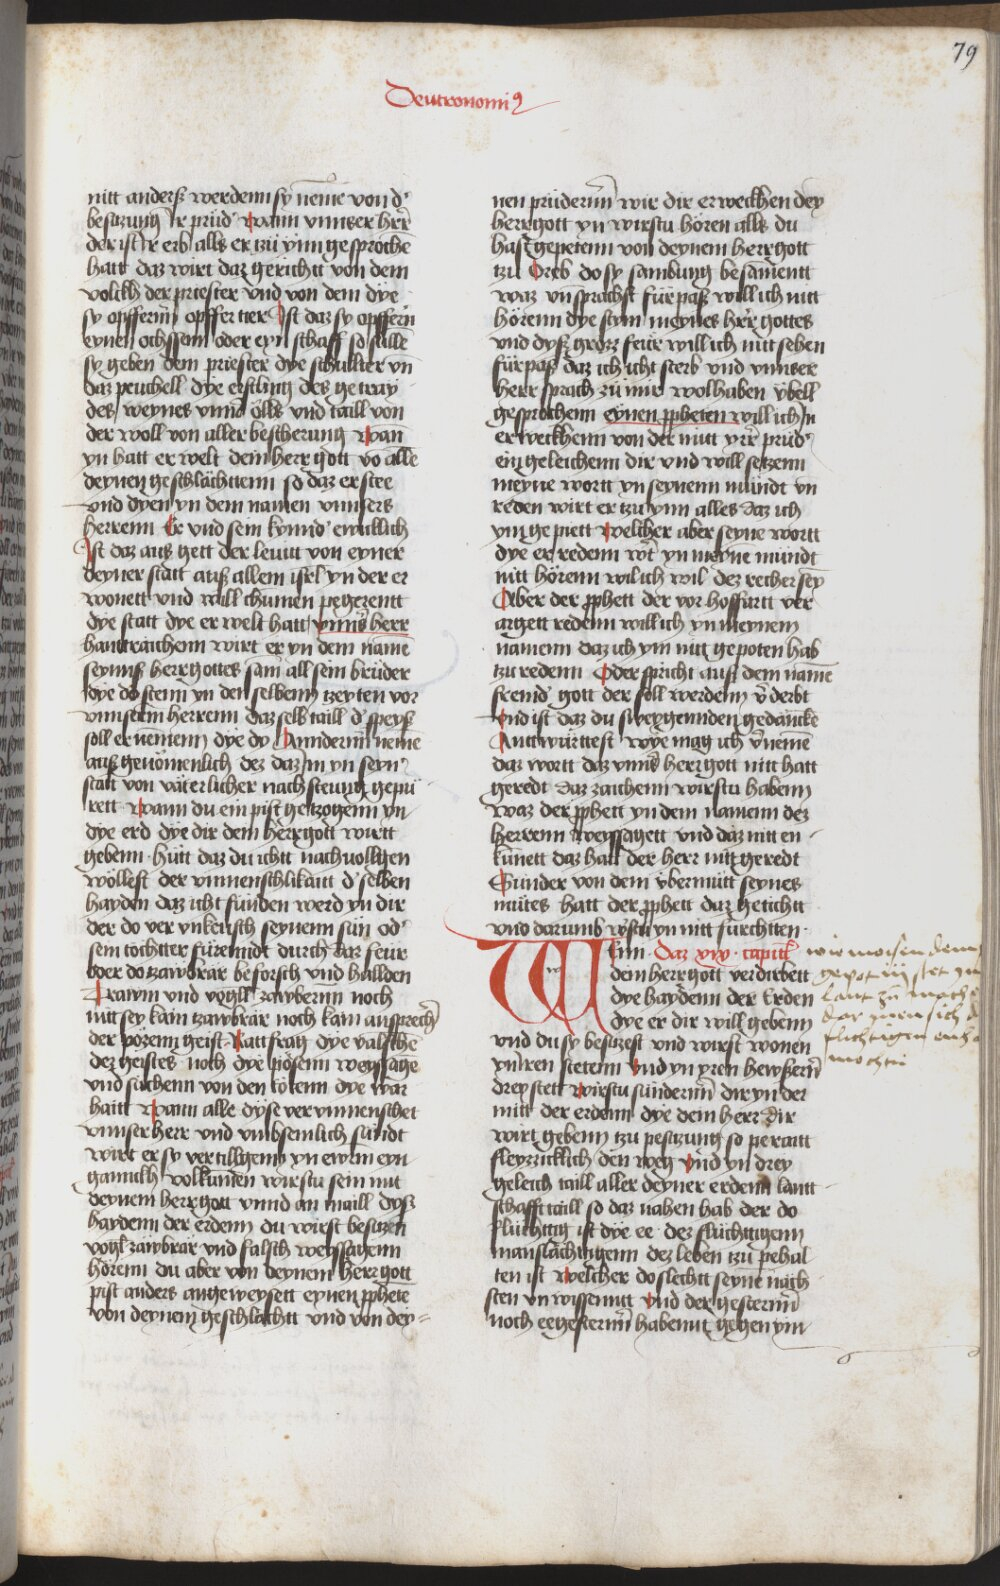 79
Deutronomiꝯ
nitt anderß werdenn sy neme von d'
besitzung ir prüd' wann vnnser herr
der ist ir erb alls er tzü ynn gesproche
hatt daz wirt daz gerichtt von dem
volckh der priester vnd von dem dye
sy opffernn opffer tier Ist daz sy opffern
eynen ochssenn oder eyn schaff so sülle
sy geben dem priester dye schulter vn
daz peuchell dye erstling des getray
des weynes vnnd ölls vnd taill von
der woll von aller bescherung wan
yn hatt er welt dein herr gott vo alle
deynen geschlächttenn so daz er stee
vnd dyen yn dem namen vnnsers
herrenn Er vnd sein kynnd' ewicklich
Ist daz aus gett der leuitt von eyner
deyner statt auß allem isrl yn der er
wonett vnd will chumen pegerentt
dye statt dye er welt hatt vnns herr
hantraichenn wirt er yn dem name
seynns herr gottes sam all sein brüder
dye do stenn yn den selbenn tzeyten vor
vnnserm herrenn daz selb taill d' speyß
soll er nemenn dye dy Anndernn neme
auß genömenlich dez daz im yn seyn'
statt von väterlicher nach steung gepü
rett wann du ein pist getzogenn yn
dye erd dye dir dein herrgott wirtt
gebenn hütt daz du ichtt nachuollgen
wöllest der vnmenschlikaitt d' selben
hayden daz icht fünden werd yn dir
der do ver vnkeusch seynenn sün od'
sein tochtter fürennd durch daz feür
oder do tzawbrär beforsch vnd hallden
Trawm vnd vogll zawbernn noch
nitt sey kain tzawbrär noch kain ansprech'
der pözenn geist Rattfrag dye valsche
dez geistes noch dye pösenn weyssage
vnd süchenn von den totenn dye war
haitt wann alle dyse ver vnmenschet
vnnser herr vnd vmb semlich sündt
wirt er sy vertillgenn yn ewrm eyn
gannckh volkumen wirstu sein mit
deynem herrgott vnnd an maill dyß
haydenn der erdenn du wirst besitzen
vogl zäwbrär vnd falsch weyssagenn
hörenn du aber von deynem herr gott
pist anders angeweysett eynen pphete
von deynem geschlächtt vnd von dey=
nen prüdernn wir dir erweckhen dey
herrgott yn wirstu hören alls du
hast gepetenn von deynem herrgott
tzu Oreb do sy samblung besamentt
waz vn sprachst für paß will ich nitt
hörenn dye stym meynes herr gottes
vnd dyß größ feür will ich nitt sehen
fürpaß daz ich icht sterb vnd vnnser
herr sprach zü mir wol haben ybell
gesprochenn eynen ppheten will ich in
erweckhenn von der mitt yrr prüd'
ein geleichenn dir vnd will setzenn
meyne wortt yn seynenn mündt vn
reden wirt er tzu ynn alles daz ich
ym gepiett welcher aber seyne wortt
dye er redenn wt yn meyne mündt
nitt hörenn wil ich wil dez recher sey
Aber der pphett der vor hoffartt ver
argett redenn will ich yn meynem
namenn daz ich ym nitt gepoten hab
tzu redenn Oder spricht auß dem name
fremd' gott der soll werdenn v'derbt
vnd ist daz du sweygennden gedancke
Anttwürttest wye mag ich v'neme
daz wortt daz vnns herr gott nitt hatt
geredt daz zaichenn wirstu habenn
waz der pphett yn dem namenn dez
herrenn weyssagett vnd daz nitt en
kümett daz hatt der herr nitt geredt
Sünder von dem vbermütt seynes
mütes hatt der pphett daz getichtt
vnd darumb wstu yn nitt fürchtten
Wenn Daz xix capitel
dein herr gott verdirbett
dye haydenn der Erden
dye er dir will gebenn
vnd du sy besitzest vnd wirst wonen
yn iren stetenn vnd yn yren hewßern
drey stett wirstu sündernn dir yn der
mitt der erdenn dye dein herr dir
wirt gebenn tzu pesitzung so peraitt
fleyzzicklich den weg vnd yn drey
geleich taill aller deyner erdenn lantt
schafft taill so daz nahen hab der do
flüchttig ist dye ee dez flüchttigenn
manslächtigenn dez leben tzü pehal
ten ist welcher do slechtt seyne näch
sten vn wissennt vnd der gesternn
noch eegesternn habennt gegen ym